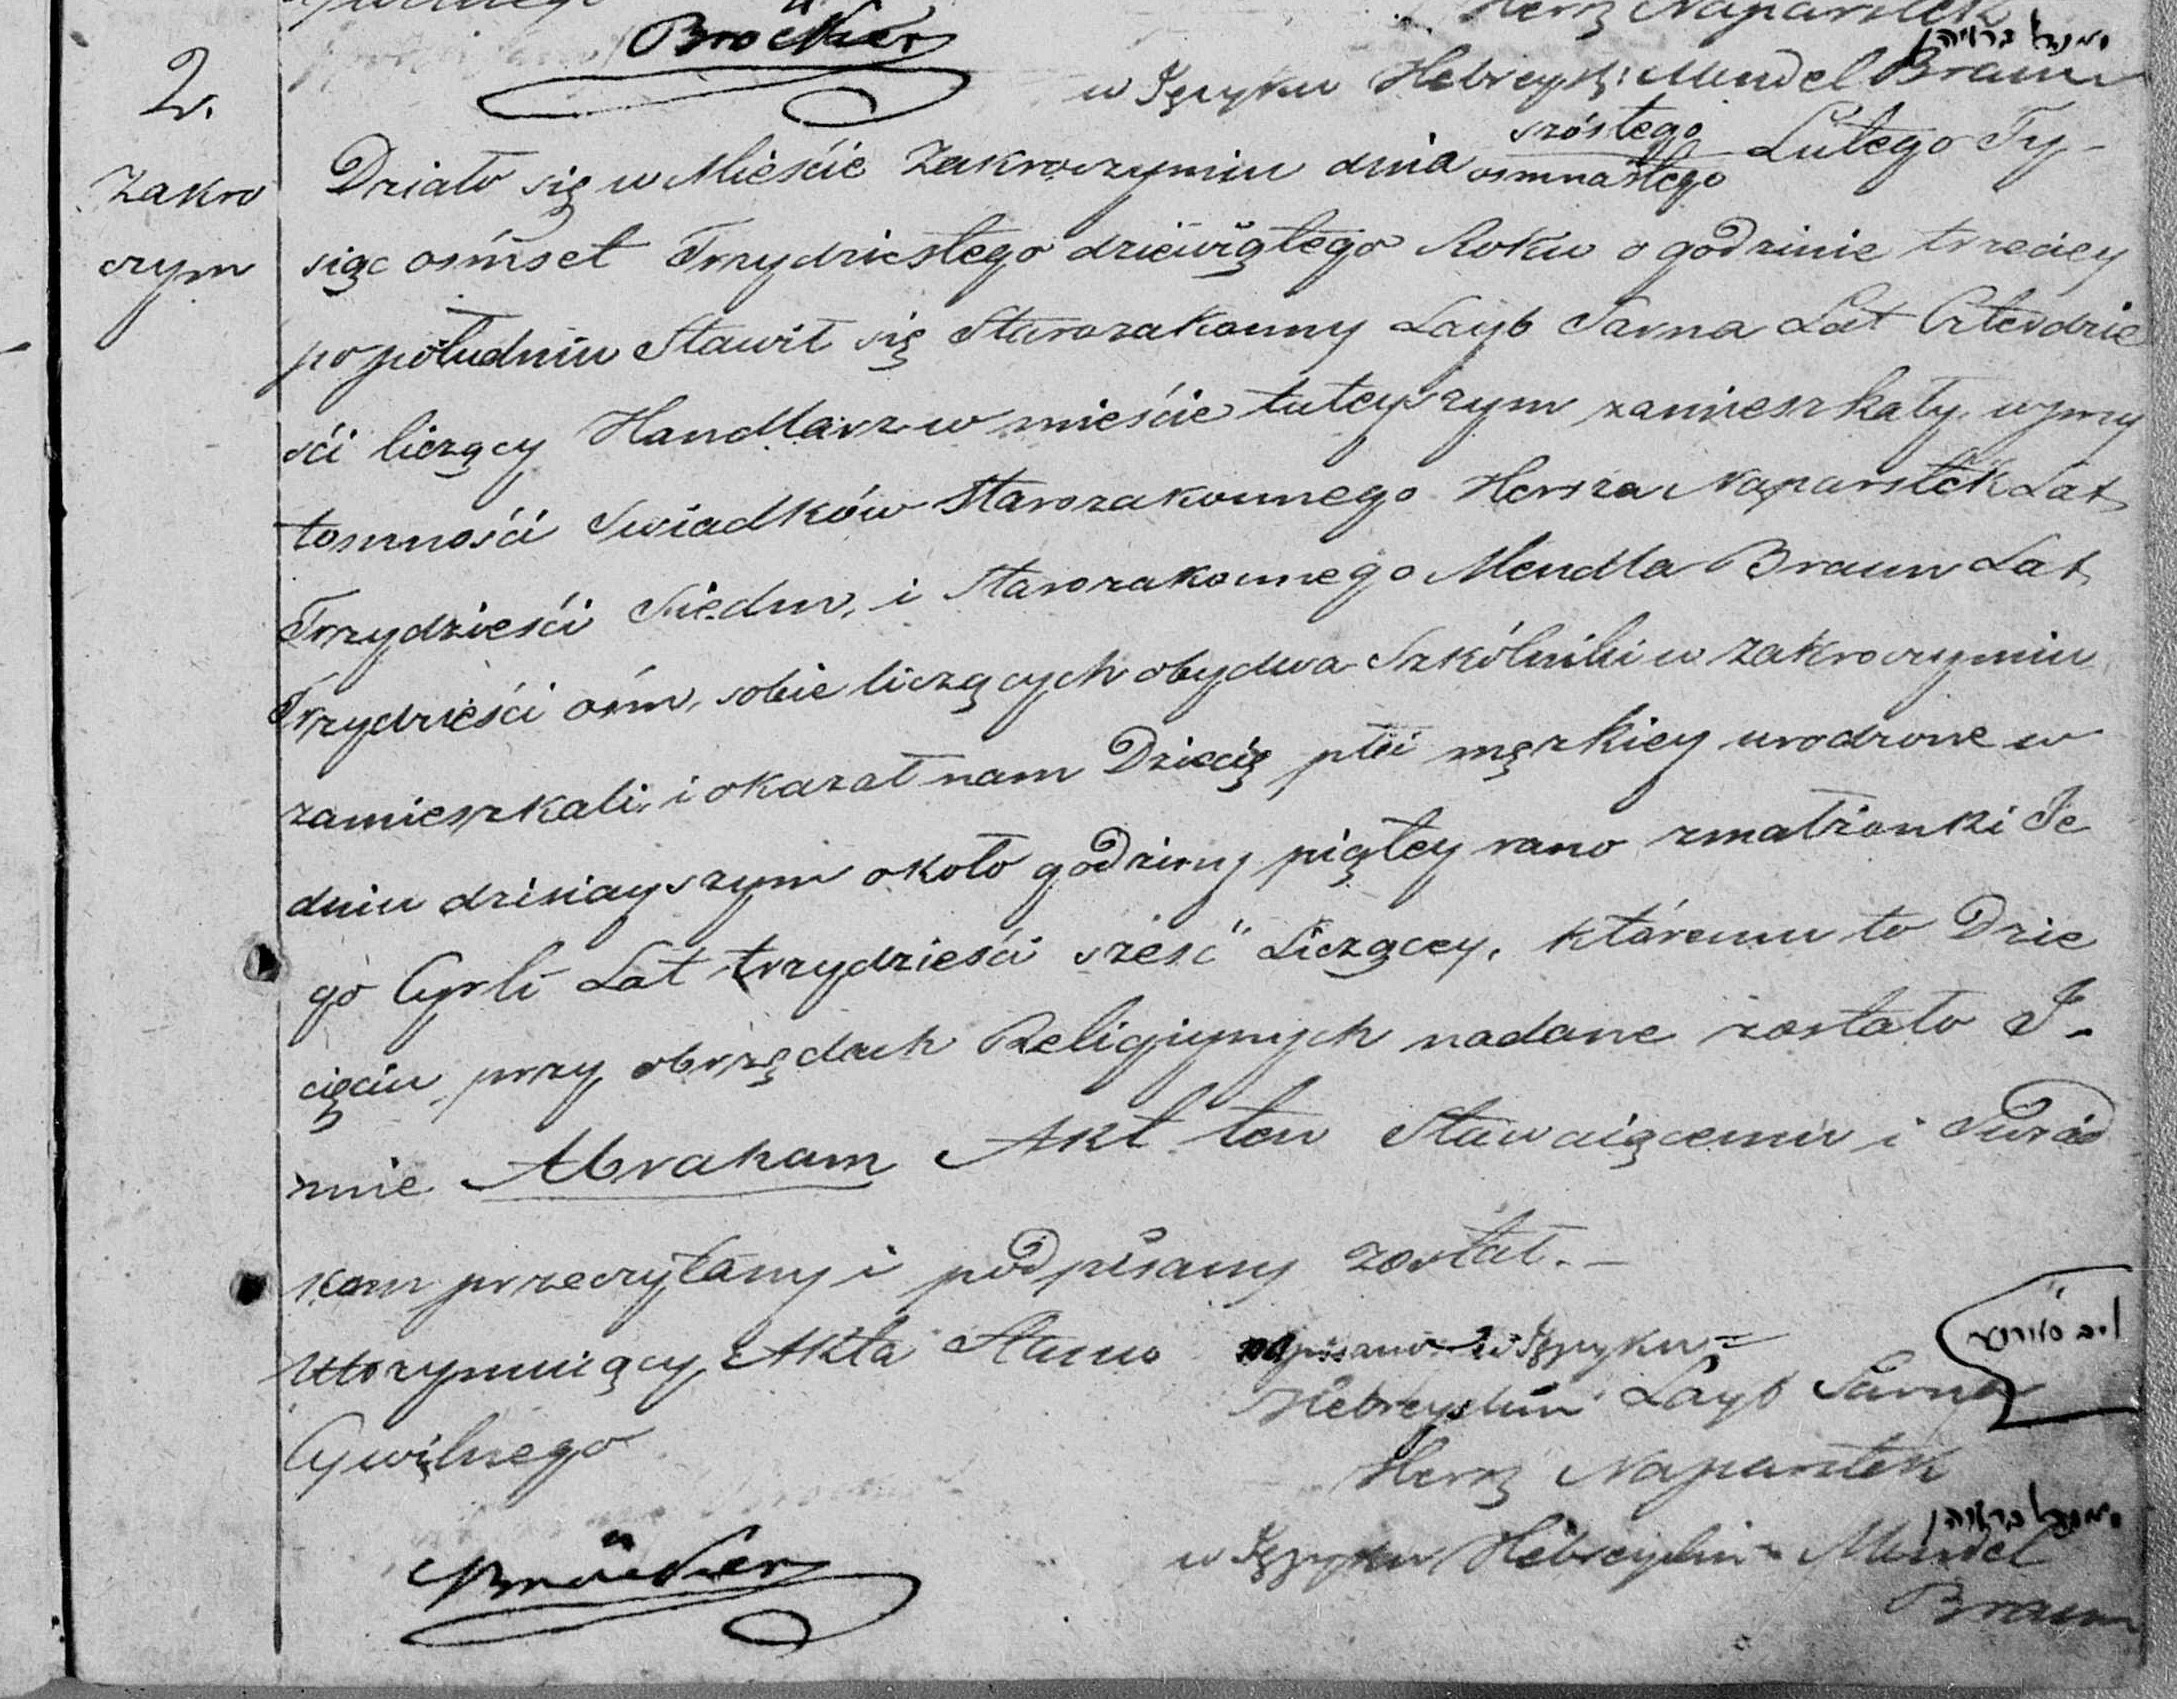 Bröcker
Hersz Naparstek
מענדל ברוין
w Języku Hebreysk: Mendel Braun
2.
Zakro
czym
szóstego
Działo się w Mieście Zakroczymiu dnia osmnastego Lutego Ty-
siąc ośmset Trzydziestego dziewiątego Roku o godzinie trzeciey
po południu Stawił się Starozakonny Layb Sarna Lat Czterdzie
ści liczący Handlarz w mieście tuteyszym zamieszkały, w przy
tomności Swiadków Starozakonnego Hersza Naparstek Lat
Trzydzieści Siedm, i Starozakonnego Mendla Braun Lat
Trzydzieści ośm, sobie liczących obydwa Szkólniki w Zakroczymiu
zamieszkali, i okazał nam Dziecię płci męzkiey urodzone w
dniu dzisiayszym około godziny piątey rano z małżonki Je
go Cyrli Lat trzydzieści sześć Liczącey, któremu to Dzie
cięciu przy obrzędach Religiynych nadane zostało I-
mie Abraham Akt ten Stawaiącemu i Swiad
kom przeczytany i podpisany został.-
Utrzymuiący Akta Stanu
Cywilnego
ליב סארנא
w Języku =
Hebreyskim Layb Sarna
Hersz Naparstek
מענדל ברוין
w Języku Hebreyskim Mendel
Braun
Bröcker